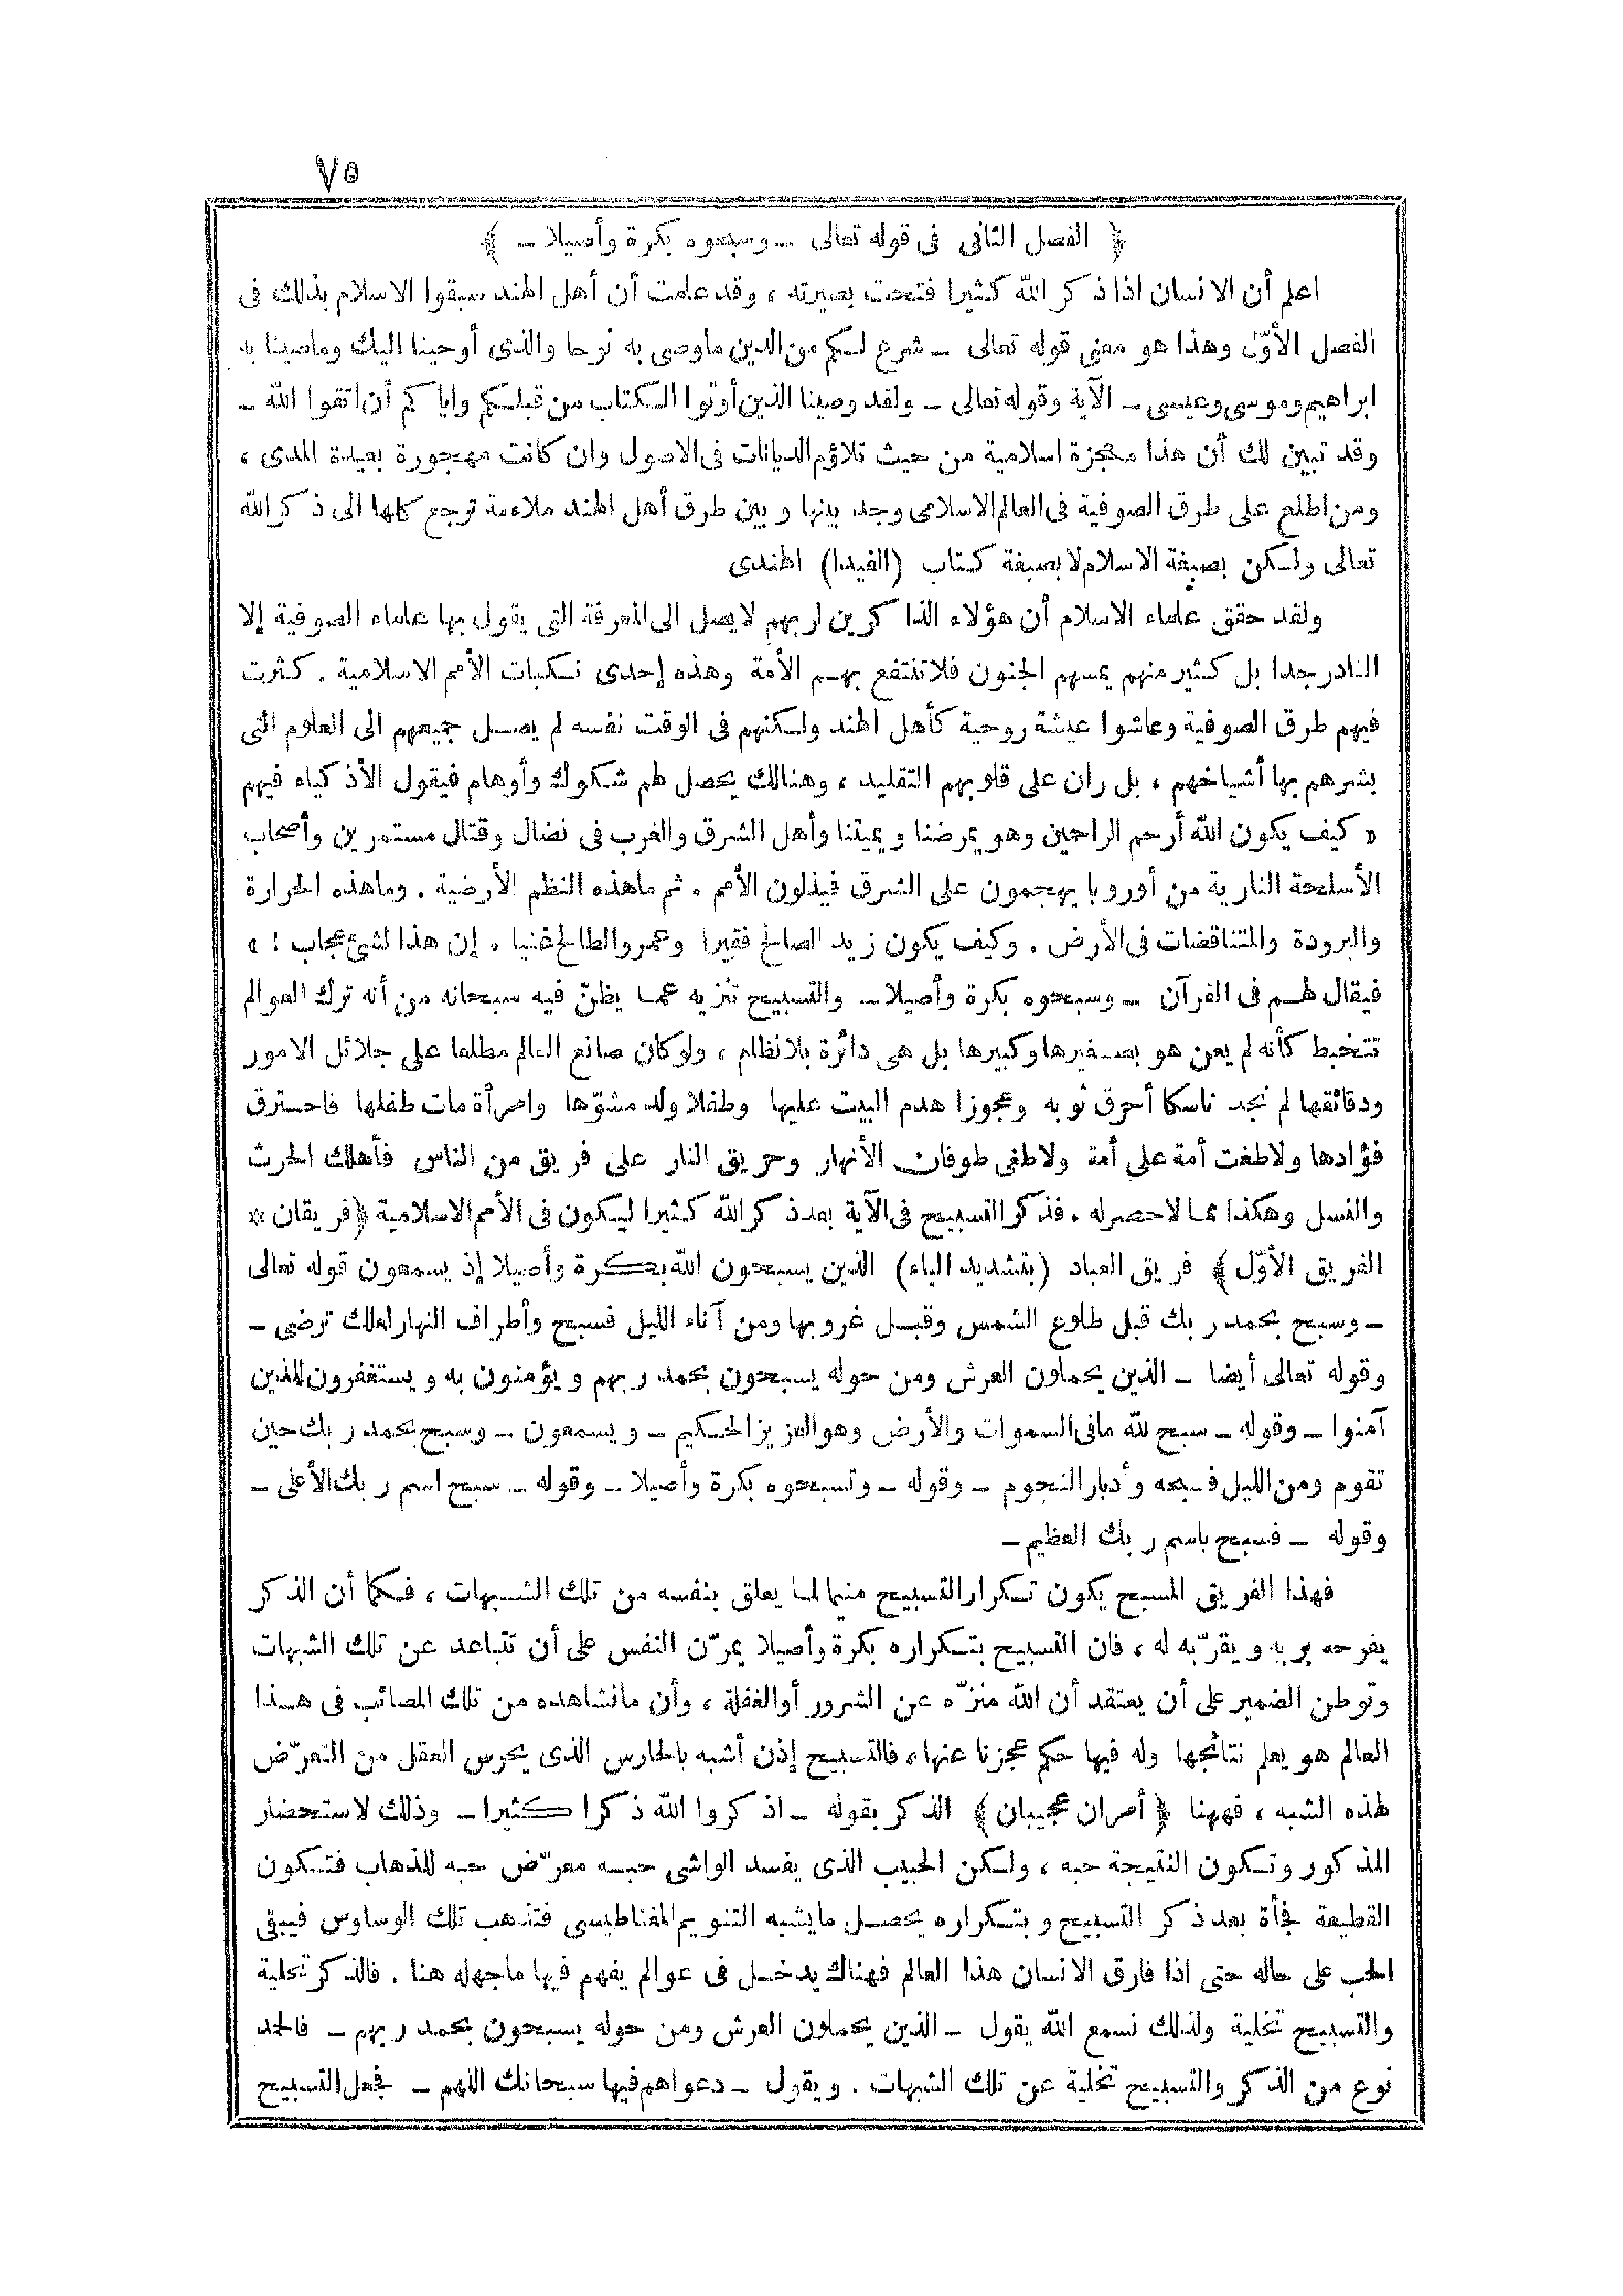 ٧٥
﴿ الفصل الثانى فى قوله تعالى ــ وسبحوه بكرة وأصيلا ــ ﴾
اعلم أن الانسان اذا ذكر الله كثيرا فتحت بصيرته ، وقد علمت أن أهل الهند سبقوا الاسلام بذلك فى
الفصل الأوّل وهذا هو معنى قوله تعالى ــ شرع لكم من الدين ماوصى به نوحا والذى أوحينا اليك وماصينا به
ابراهيم وموسى وعيسى ــ الآية وقوله تعالى ــ ولقد وصينا الذين أوتوا الكتاب من قبلكم واياكم أن اتقوا الله ــ
وقد تبين لك أن هذا معجزة اسلامية من حيث تلاؤم الديانات فى الاصول وان كانت مهجورة بعيدة المدى ،
ومن اطلع على طرق الصوفية فى العالم الاسلامى وجد بينها وبين طرق أهل الهند ملاءمة ترجع كلها الى ذكر الله
تعالى ولكن بصبغة الاسلام لا بصبغة كتاب (الفيدا) الهندى
ولقد حقق علماء الاسلام أن هؤلاء الذاكرين لربهم لايصل الى المعرفة التى يقول بها علماء الصوفية إلا
النادر جدا بل كثير منهم يمسهم الجنون فلا تنتفع بهم الأمة وهذه إحدى نكبات الأمم الاسلامية . كثرت
فيهم طرق الصوفية وعاشوا عيشة روحية كأهل الهند ولكنهم فى الوقت نفسه لم يصل جميعهم الى العلوم التى
بشرهم بها أشياخهم ، بل ران على قلوبهم التقليد ، وهنالك يحصل لهم شكوك وأوهام فيقول الأذكياء فيهم
« كيف يكون الله أرحم الراحمين وهو يمرضنا ويميتنا وأهل الشرق والغرب فى نضال وقتال مستمرين وأصحاب
الأسلحة النارية من أوروبا يهجمون على الشرق فيذلون الأمم . ثم ماهذه النظم الأرضية . وماهذه الحرارة
والبرودة والمتناقضات فى الأرض . وكيف يكون زيد الصالح فقيرا وعمرو الطالح غنيا . إن هذا لشئ عجاب ! »
فيقال لهم فى القرآن ــ وسبحوه بكرة وأصيلا ــ والتسبيح تنزيه عما يظنّ فيه سبحانه من أنه ترك العوالم
تتخبط كأنه لم يعن هو بصغيرها وكبيرها بل هى دائرة بلانظام ، ولو كان صانع العالم مطلعا على جلائل الامور
ودقائقها لم نجد ناسكا أحرق ثوبه وعجوزا هدم البيت عليها وطفلا ولد مشوّها وامرأة مات طفلها فاحترق
فؤادها ولا طغت أمة على أمة ولا طغى طوفان الأنهار وحريق النار على فريق من الناس فأهلك الحرث
والنسل وهكذا مما لاحصر له . فذكر التسبيح فى الآية بعد ذكر الله كثيرا ليكون فى الأمم الاسلامية ﴿ فريقان *
الفريق الأوّل ﴾ فريق العباد (بتشديد الباء) الذين يسبحون الله بكرة وأصيلا إذ يسمعون قوله تعالى
ــ وسبح بحمد ربك قبل طلوع الشمس وقبل غروبها ومن آناء الليل فسبح وأطراف النهار لعلك ترضى ــ
وقوله تعالى أيضا ــ الذين يحملون العرش ومن حوله يسبحون بحمد ربهم ويؤمنون به ويستغفرون للذين
آمنوا ــ وقوله ــ سبح لله مافى السموات والأرض وهو العزيز الحكيم ــ ويسمعون ــ وسبح بحمد ربك حين
تقوم ومن الليل فسبحه وأدبار النجوم ــ وقوله ــ وتسبحوه بكرة وأصيلا ــ وقوله ــ سبح اسم ربك الأعلى ــ
وقوله ــ فسبح باسم ربك العظيم ــ
فهذا الفريق المسبح يكون تكرار التسبيح منيما لما يعلق بنفسه من تلك الشبهات ، فكما أن الذكر
يفرحه بربه ويقرّبه له ، فان التسبيح بتكراره بكرة وأصيلا يمرّن النفس على أن تتباعد عن تلك الشبهات
وتوطن الضمير على أن يعتقد أن الله منزّه عن الشرور أو الغفلة ، وأن مانشاهده من تلك المصائب فى هذا
العالم هو يعلم نتائجها وله فيها حكم عجزنا عنها ، فالتسبيح إذن أشبه بالحارس الذى يحرس العقل من التعرّض
لهذه الشبه ، فههنا ﴿ أمران عجيبان ﴾ الذكر بقوله ــ اذكروا الله ذكرا كثيرا ــ وذلك لاستحضار
المذكور وتكون النتيجة حبه ، ولكن الحبيب الذى يفسد الواشى حبه معرّض حبه للذهاب فتكون
القطيعة فجأة بعد ذكر التسبيح وبتكراره يحصل مايشبه التنويم المغناطيسى فتذهب تلك الوساوس فيبقى
الحب على حاله حتى اذا فارق الانسان هذا العالم فهناك يدخل فى عوالم يفهم فيها ماجهله هنا . فالذكر تحلية
والتسبيح تخلية ولذلك نسمع الله يقول ــ الذين يحملون العرش ومن حوله يسبحون بحمد ربهم ــ فالحمد
نوع من الذكر والتسبيح تخلية عن تلك الشبهات . ويقول ــ دعواهم فيها سبحانك اللهم ــ فجعل التسبيح